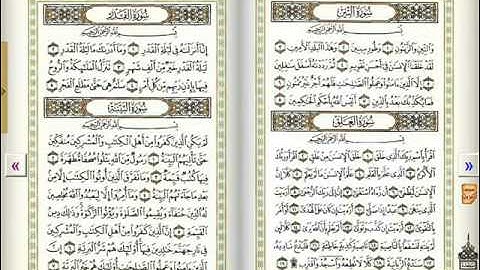 سُورَةُ التِّينِ
بِسْمِ اللَّهِ الرَّحْمَٰنِ الرَّحِيمِ
وَالتِّينِ وَالزَّيْتُونِ ١ وَطُورِ سِينِينَ ٢ وَهَٰذَا الْبَلَدِ الْأَمِينِ ٣
لَقَدْ خَلَقْنَا الْإِنسَٰنَ فِي أَحْسَنِ تَقْوِيمٍ ٤ ثُمَّ رَدَدْنَٰهُ أَسْفَلَ سَٰفِلِينَ ٥
إِلَّا الَّذِينَ ءَامَنُوا وَعَمِلُوا الصَّٰلِحَٰتِ فَلَهُمْ أَجْرٌ غَيْرُ مَمْنُونٍ ٦
فَمَا يُكَذِّبُكَ بَعْدُ بِالدِّينِ ٧ أَلَيْسَ اللَّهُ بِأَحْكَمِ الْحَٰكِمِينَ ٨
سُورَةُ الْعَلَقِ
بِسْمِ اللَّهِ الرَّحْمَٰنِ الرَّحِيمِ
اقْرَأْ بِاسْمِ رَبِّكَ الَّذِي خَلَقَ ١ خَلَقَ الْإِنسَٰنَ مِنْ عَلَقٍ ٢ اقْرَأْ وَرَبُّكَ
الْأَكْرَمُ ٣ الَّذِي عَلَّمَ بِالْقَلَمِ ٤ عَلَّمَ الْإِنسَٰنَ مَا لَمْ يَعْلَمْ ٥ كَلَّا إِنَّ
الْإِنسَٰنَ لَيَطْغَىٰ ٦ أَن رَّءَاهُ اسْتَغْنَىٰ ٧ إِنَّ إِلَىٰ رَبِّكَ الرُّجْعَىٰ ٨ أَرَءَيْتَ
الَّذِي يَنْهَىٰ ٩ عَبْدًا إِذَا صَلَّىٰ ١٠ أَرَءَيْتَ إِن كَانَ عَلَى الْهُدَىٰ ١١
أَوْ أَمَرَ بِالتَّقْوَىٰ ١٢ أَرَءَيْتَ إِن كَذَّبَ وَتَوَلَّىٰ ١٣ أَلَمْ يَعْلَم بِأَنَّ اللَّهَ يَرَىٰ ١٤
كَلَّا لَئِن لَّمْ يَنتَهِ لَنَسْفَعًا بِالنَّاصِيَةِ ١٥ نَاصِيَةٍ كَٰذِبَةٍ خَاطِئَةٍ ١٦
فَلْيَدْعُ نَادِيَهُ ١٧ سَنَدْعُ الزَّبَانِيَةَ ١٨ كَلَّا لَا تُطِعْهُ وَاسْجُدْ وَاقْتَرِب ١٩
سُورَةُ الْقَدْرِ
بِسْمِ اللَّهِ الرَّحْمَٰنِ الرَّحِيمِ
إِنَّا أَنزَلْنَٰهُ فِي لَيْلَةِ الْقَدْرِ ١ وَمَا أَدْرَىٰكَ مَا لَيْلَةُ الْقَدْرِ ٢
لَيْلَةُ الْقَدْرِ خَيْرٌ مِّنْ أَلْفِ شَهْرٍ ٣ تَنَزَّلُ الْمَلَٰئِكَةُ وَالرُّوحُ
فِيهَا بِإِذْنِ رَبِّهِم مِّن كُلِّ أَمْرٍ ٤ سَلَٰمٌ هِيَ حَتَّىٰ مَطْلَعِ الْفَجْرِ ٥
سُورَةُ الْبَيِّنَةِ
بِسْمِ اللَّهِ الرَّحْمَٰنِ الرَّحِيمِ
لَمْ يَكُنِ الَّذِينَ كَفَرُوا مِنْ أَهْلِ الْكِتَٰبِ وَالْمُشْرِكِينَ مُنفَكِّينَ
حَتَّىٰ تَأْتِيَهُمُ الْبَيِّنَةُ ١ رَسُولٌ مِّنَ اللَّهِ يَتْلُوا صُحُفًا مُّطَهَّرَةً ٢
فِيهَا كُتُبٌ قَيِّمَةٌ ٣ وَمَا تَفَرَّقَ الَّذِينَ أُوتُوا الْكِتَٰبَ إِلَّا مِن
بَعْدِ مَا جَاءَتْهُمُ الْبَيِّنَةُ ٤ وَمَا أُمِرُوا إِلَّا لِيَعْبُدُوا اللَّهَ مُخْلِصِينَ
لَهُ الدِّينَ حُنَفَاءَ وَيُقِيمُوا الصَّلَوٰةَ وَيُؤْتُوا الزَّكَوٰةَ وَذَٰلِكَ دِينُ
الْقَيِّمَةِ ٥ إِنَّ الَّذِينَ كَفَرُوا مِنْ أَهْلِ الْكِتَٰبِ وَالْمُشْرِكِينَ
فِي نَارِ جَهَنَّمَ خَٰلِدِينَ فِيهَا أُولَٰئِكَ هُمْ شَرُّ الْبَرِيَّةِ ٦ إِنَّ
الَّذِينَ ءَامَنُوا وَعَمِلُوا الصَّٰلِحَٰتِ أُولَٰئِكَ هُمْ خَيْرُ الْبَرِيَّةِ ٧